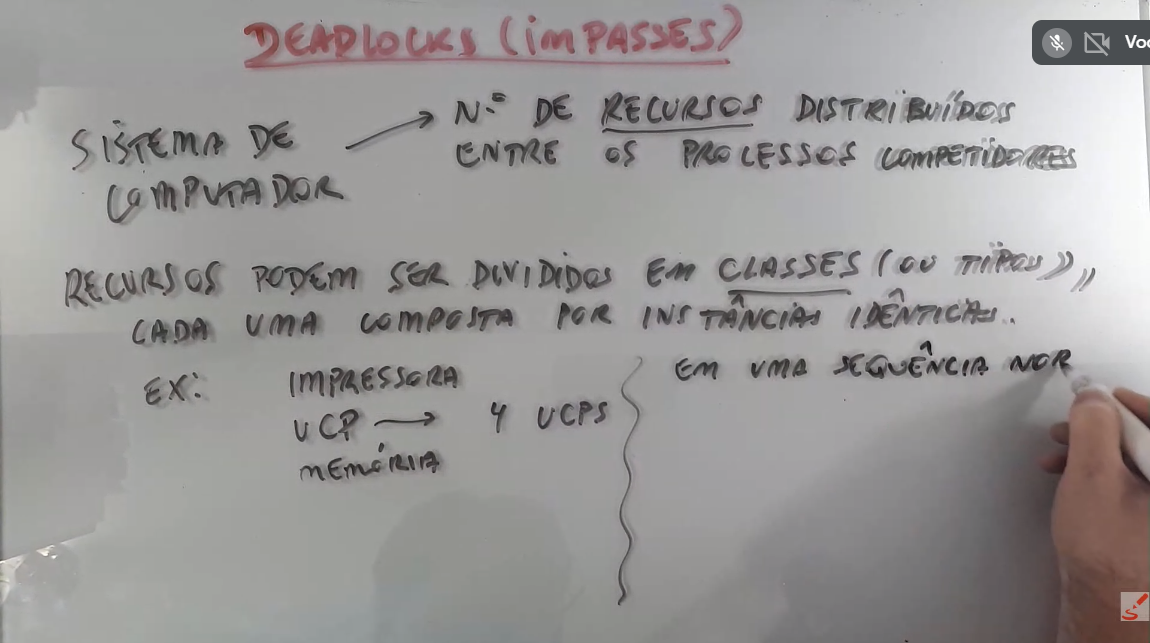 DEADLOCKS (IMPASSES)
SISTEMA DE
COMPUTADOR
N.º DE RECURSOS DISTRIBUÍDOS
ENTRE OS PROCESSOS COMPETIDORES
RECURSOS PODEM SER DIVIDIDOS EM CLASSES (OU TIPOS),
CADA UMA COMPOSTA POR INSTÂNCIAS IDÊNTICAS.
EX: IMPRESSORA
UCP → 4 UCPS
MEMÓRIA
EM UMA SEQUÊNCIA NOR
Voc